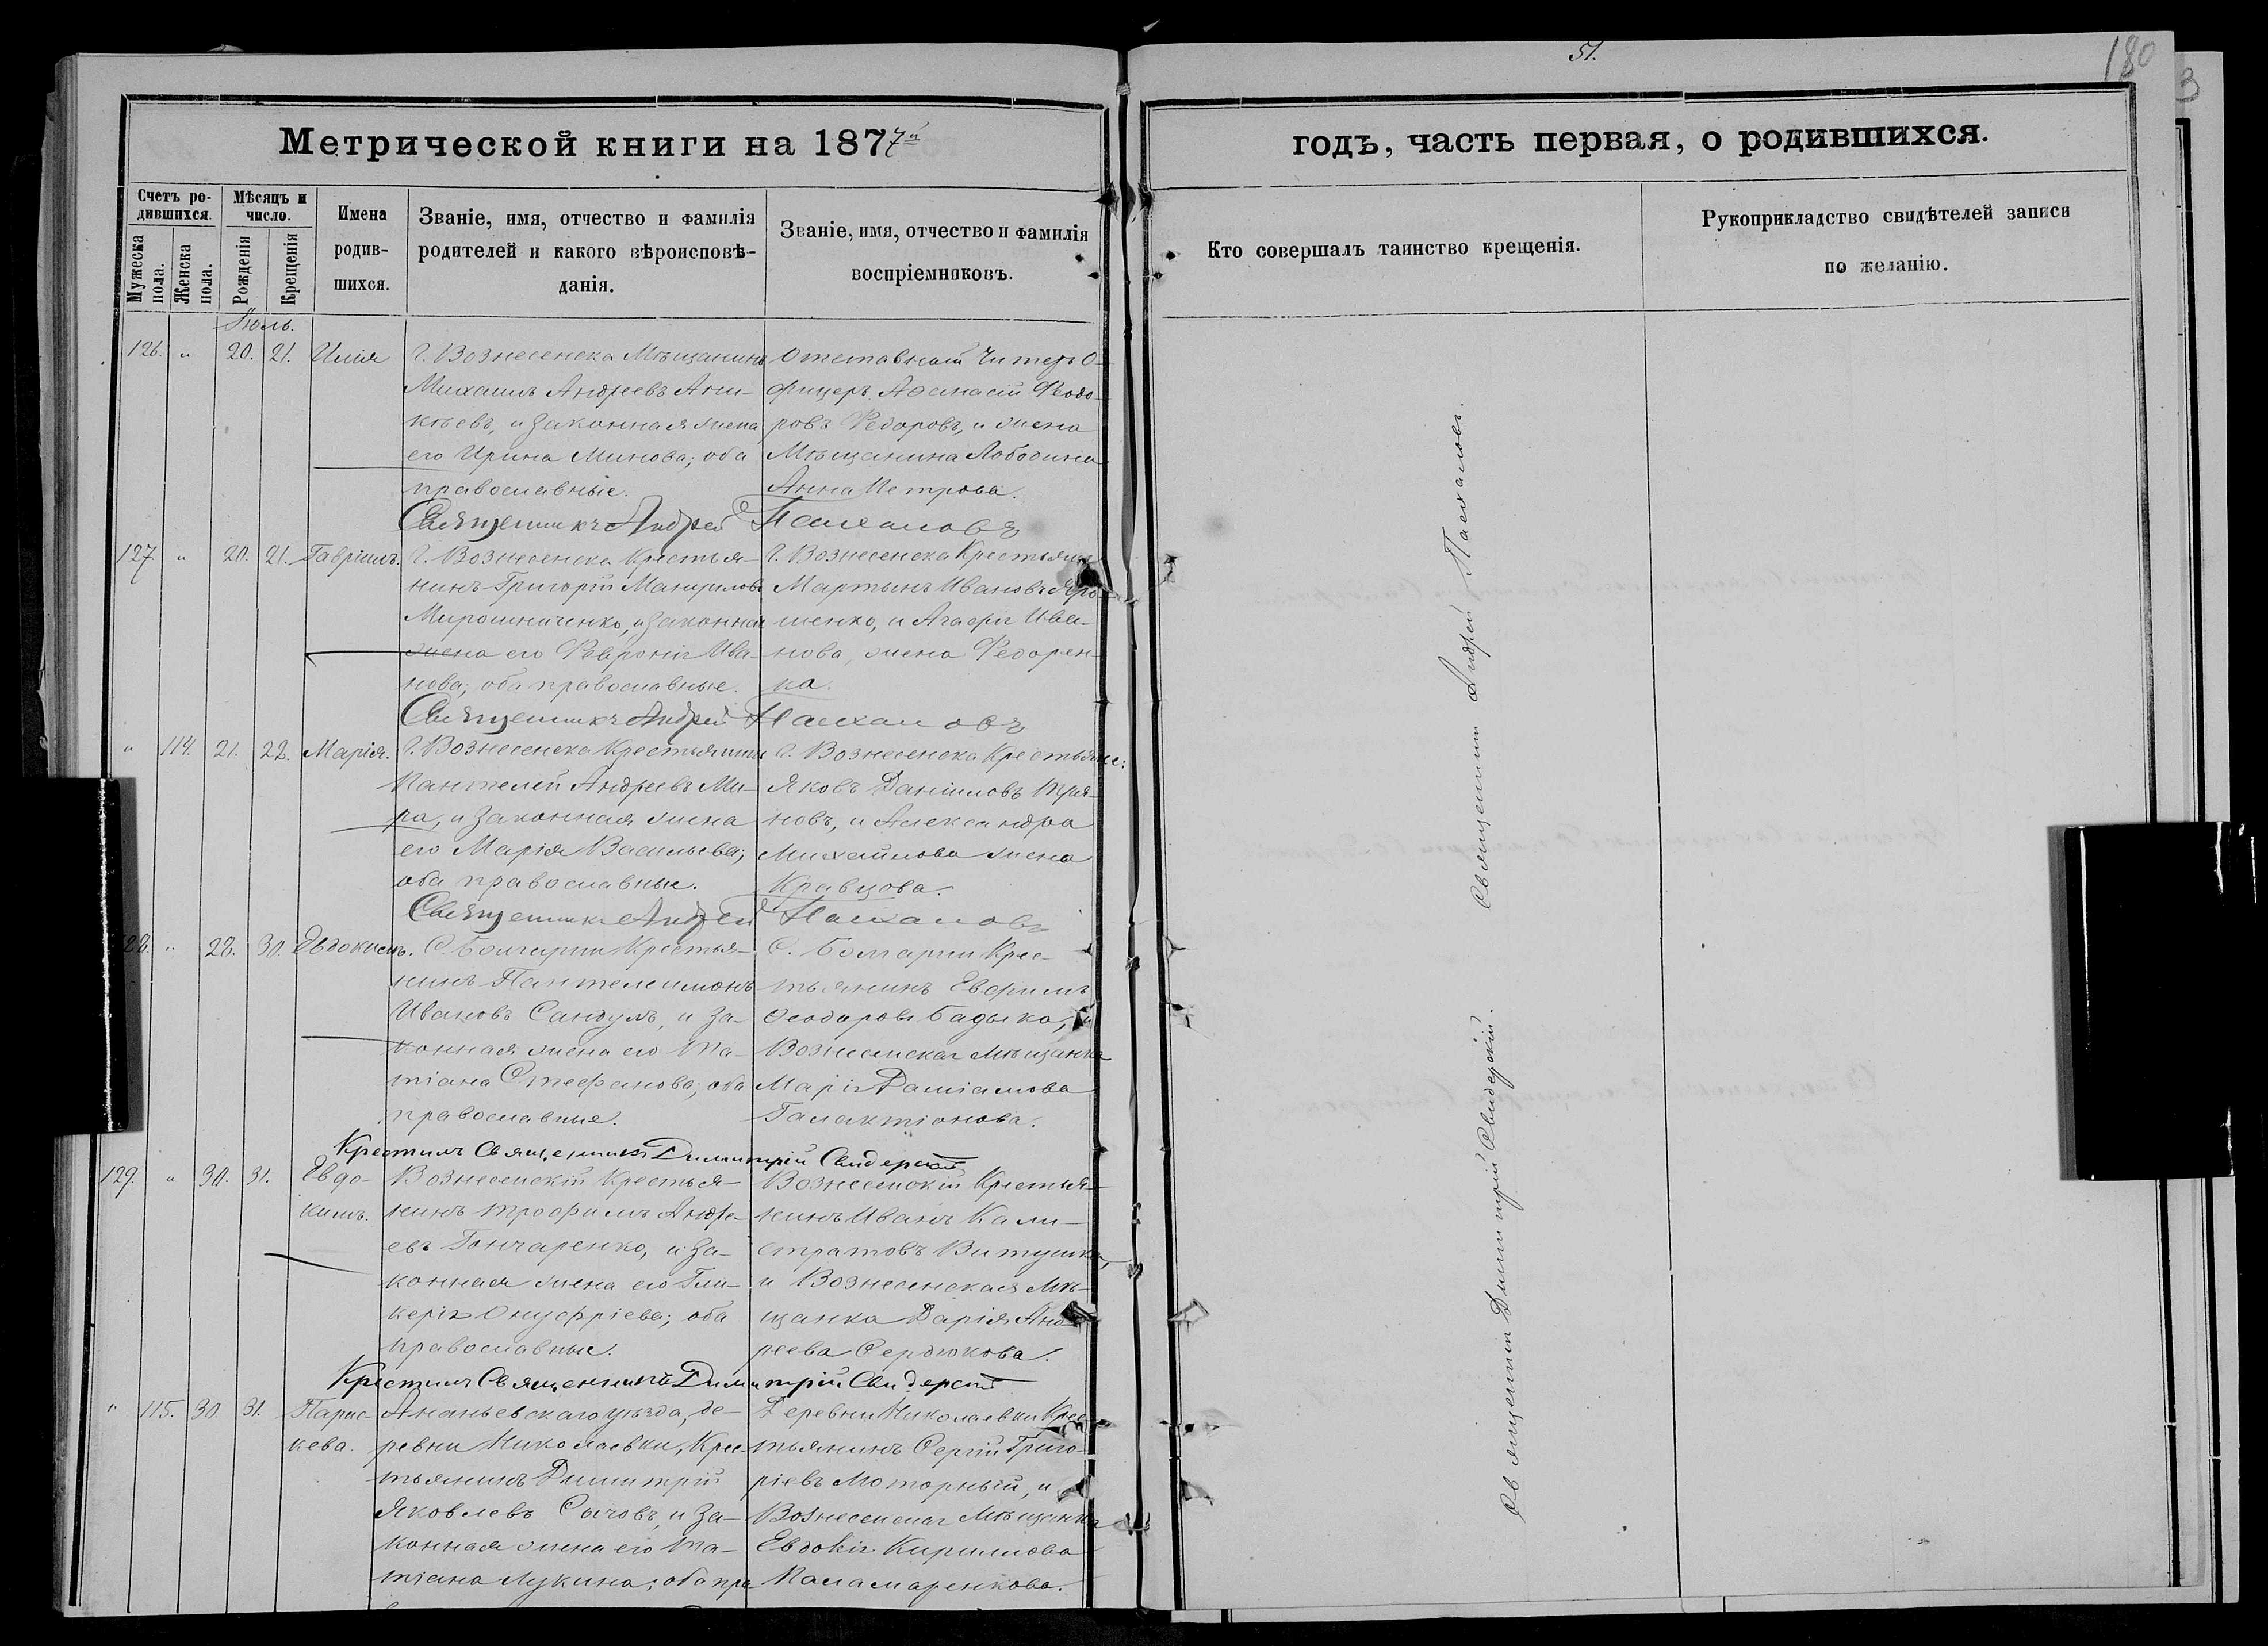 51.
180
3
Метрической книги на 1877й
годъ, часть первая, о родившихся.
Счетъ родившихся.
Мужеска пола.
Женска пола.
Мѣсяцъ и число.
Рожденія
Крещенія
Имена родившихся.
Званіе, имя, отчество и фамилія
родителей и какого вѣроисповѣданія.
Званіе, имя, отчество и фамилія
воспріемниковъ.
Кто совершалъ таинство крещенія.
Рукоприкладство свидѣтелей записи
по желанію.
Іюль.
126. " 20. 21. Илія
Г. Вознесенска Мѣщанинъ
Михаилъ Андреевъ Ани-
кѣевъ, и законная жена
его Ирина Минова; оба
православные.
Отставной Унтеръ О-
фицеръ Аѳанасій Ѳеодо-
ровъ Федоровъ, и жена
Мѣщанина Лободина
Анна Петрова.
Священникъ Андрей Пасхаловъ
127. " 20. 21. Гавріилъ.
Г. Вознесенска Крестья-
нинъ Григорій
Мирошниченко, и законная
жена его Февронія Ива-
нова; оба православные.
Г. Вознесенска Крестьяне
Мартынъ Ивановъ
шенко, и Агафія Ива-
нова, жена Федорен-
ка.
Священникъ Андрей Пасхаловъ
" 114. 21. 22. Марія.
Г. Вознесенска Крестьянинъ
Пантелей Андреевъ Ми-
ра, и законная жена
его Марія Васильева;
оба православные.
Г. Вознесенска Крестьяне:
Яковъ Даніиловъ
новъ, и Александра
Михайлова жена
Кравцова.
Священникъ Андрей Пасхаловъ
128. " 28. 30. Евдокимъ.
С. Болгарки Крестья-
нинъ Пантелеимонъ
Ивановъ Сандулъ, и за-
конная жена его Та-
тіана Стефанова; оба
православные.
С. Болгарки Крес-
тьянинъ Евфимъ
Ѳеодоровъ Бадыка, и
Вознесенская Мѣщанка
Марія Даміанова
Галактіонова.
Крестилъ Священникъ Димитрій Свидерскій
129. " 30. 31. Евдо-
кимъ.
Вознесенскій Крестья-
нинъ Трофимъ Андре-
евъ Гончаренко, и за-
конная жена его Гли-
керія Онуфріева; оба
православные.
Вознесенскій Крестья-
нинъ Иванъ Кали-
стратовъ Витушка,
и Вознесенская Мѣ-
щанка Дарія Анд-
реева Сердюкова.
Крестилъ Священникъ Димитрій Свидерскій
" 115. 30. 31. Парас-
кева.
Ананьевскаго уѣзда, де-
ревни Николаевки, Крес-
тьянинъ Димитрій
Яковлевъ Сычовъ, и за-
конная жена его Та-
тіана Лукина; оба пра
Деревни Николаевки Крес-
тьянинъ Сергій Григо-
ріевъ Моторный, и
Вознесенская Мѣщанка
Евдокія Кириллова
Паламаренкова.
Священникъ Андрей Пасхаловъ.
Священникъ Димитрій Свидерскій.